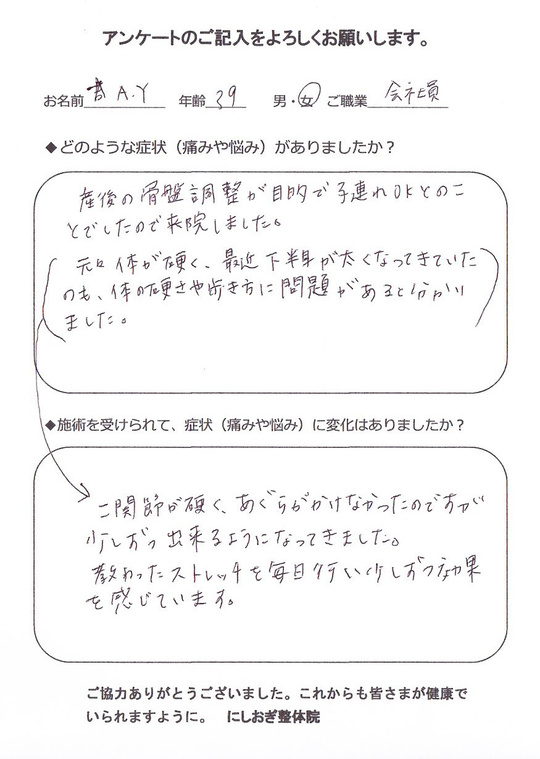 アンケートのご記入をよろしくお願いします。
お名前 A.Y 年齢 39 男・女 ご職業 会社員
◆どのような症状（痛みや悩み）がありましたか？
産後の骨盤調整が目的で子連れOKとのこ
とでしたので来院しました。
元々体が硬く、最近下半身が太くなってきていた
のも、体の硬さや歩き方に問題があると分かり
ました。
◆施術を受けられて、症状（痛みや悩み）に変化はありましたか？
関節が硬く、あぐらがかけなかったのですが
少しずつ出来るようになってきました。
教わったストレッチを毎日行い少しずつ効果
を感じています。
ご協力ありがとうございました。これからも皆さまが健康で
いられますように。 にしおぎ整体院